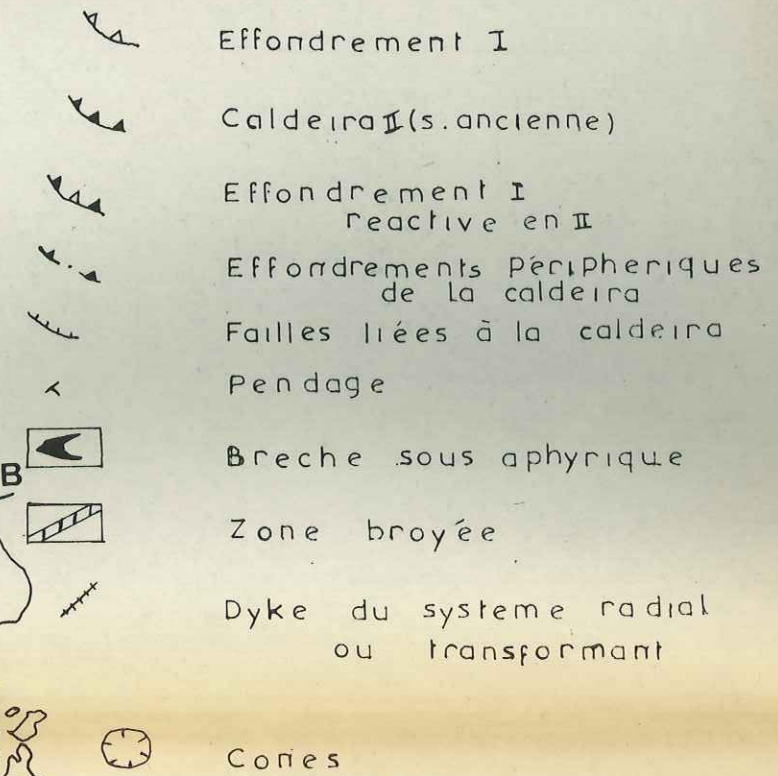 Effondrement I
Caldeira II (s. ancienne)
Effondrement I
reactive en II
Effondrements Péripheriques
de la caldeira
Failles liées à la caldeira
Pendage
Breche sous aphyrique
B
Zone broyée
Dyke du systeme radial
ou transformant
Cones